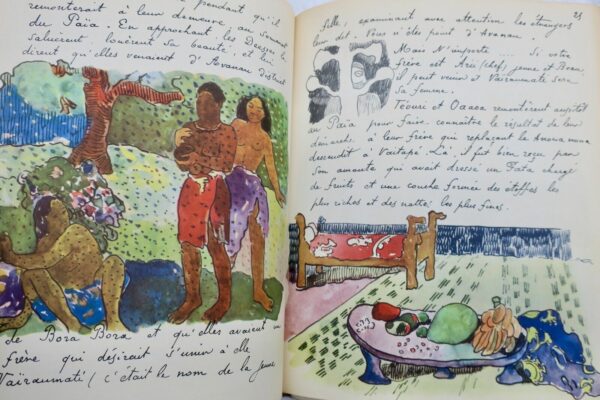 remonterait à leur demeure, au sommet
du Païa. En approchant, les Déesses le
saluèrent, louèrent sa beauté, et lui
dirent qu'elles venaient d'Avanau district
de Bora Bora et qu'elles avaient un
frère qui désirait s'unir à elle
Vaïraumati (c'était le nom de la jeune
25
fille, examinant avec attention les étrangers
leur dit. Vous n'êtes point d'Avanau.
Mais N'importe. Si votre
frère est Arii (chef), jeune et Beau,
il peut venir et Vaïraumati sera
sa femme.
Téouri et Oaaoa remontèrent aussitôt
au Païa pour faire connaître le résultat de leur
démarche à leur frère qui replaçant le Anuanua
descendit à Vaitapé. Là, il fut bien reçu par
son amante qui avait dressé un Fata chargé
de fruits et une couche formée des étoffes les
plus riches et des nattes les plus fines.